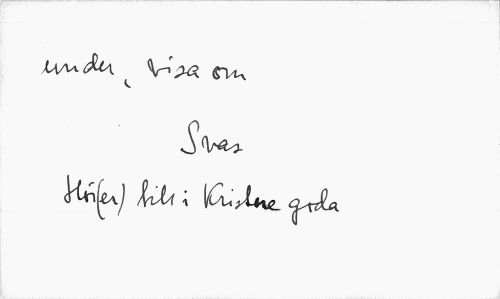 under, visa om
Svar
Hör(er) till i Kristne goda